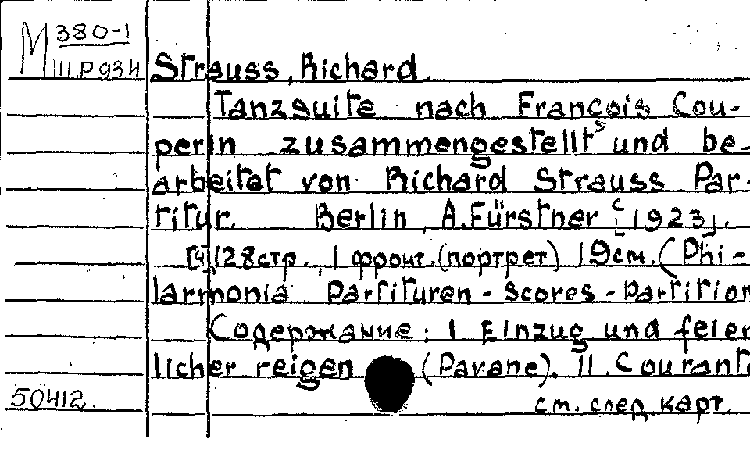 М 380-1
Ш Р 934
Strauss, Richard.
Tanzsuite nach François Cou-
perin zusammengestellt und be-
arbeitet von Richard Strauss Par-
titur. Berlin, A. Fürstner [1923].
[4], 128 стр., 1 фронт. (портрет) 19см. (Phi-
larmonia Partituren - Scores - Partition
Содержание: I Einzug und feier
licher reigen (Pavane). II. Courant
50412.
см. след. карт.